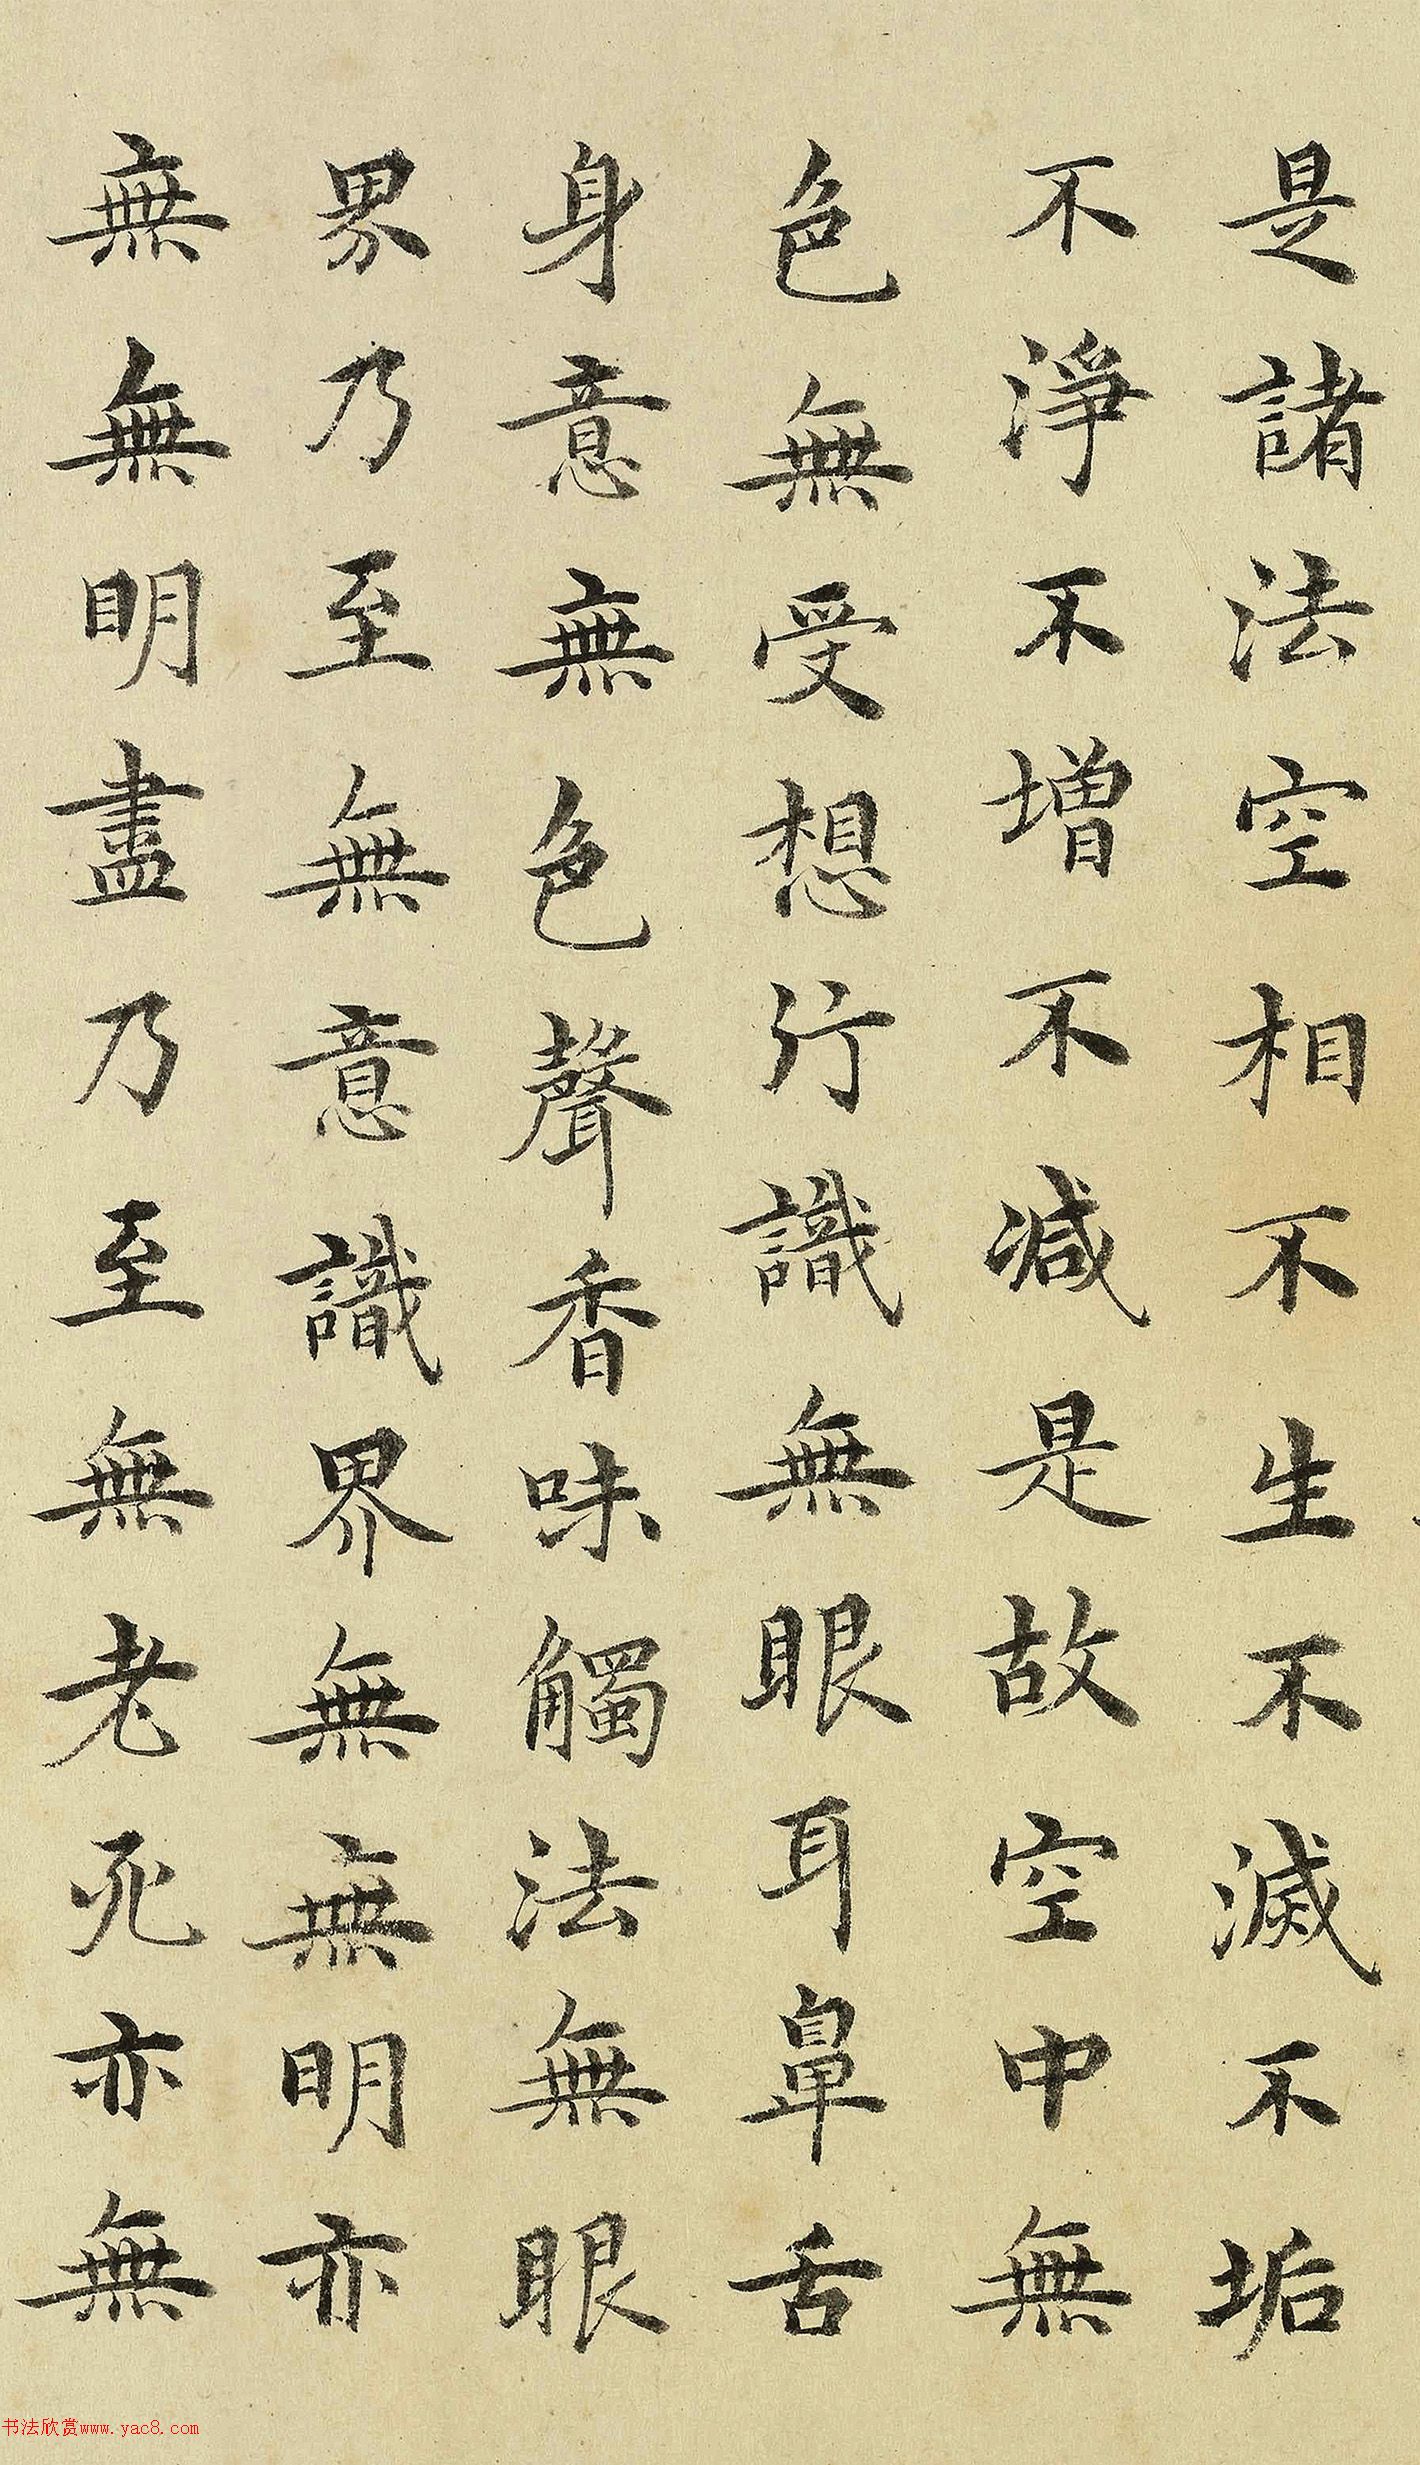 是諸法空相不生不滅不垢
不淨不增不減是故空中無
色無受想行識無眼耳鼻舌
身意無色聲香味觸法無眼
界乃至無意識界無無明亦
無無明盡乃至無老死亦無
书法欣赏www.yac8.com